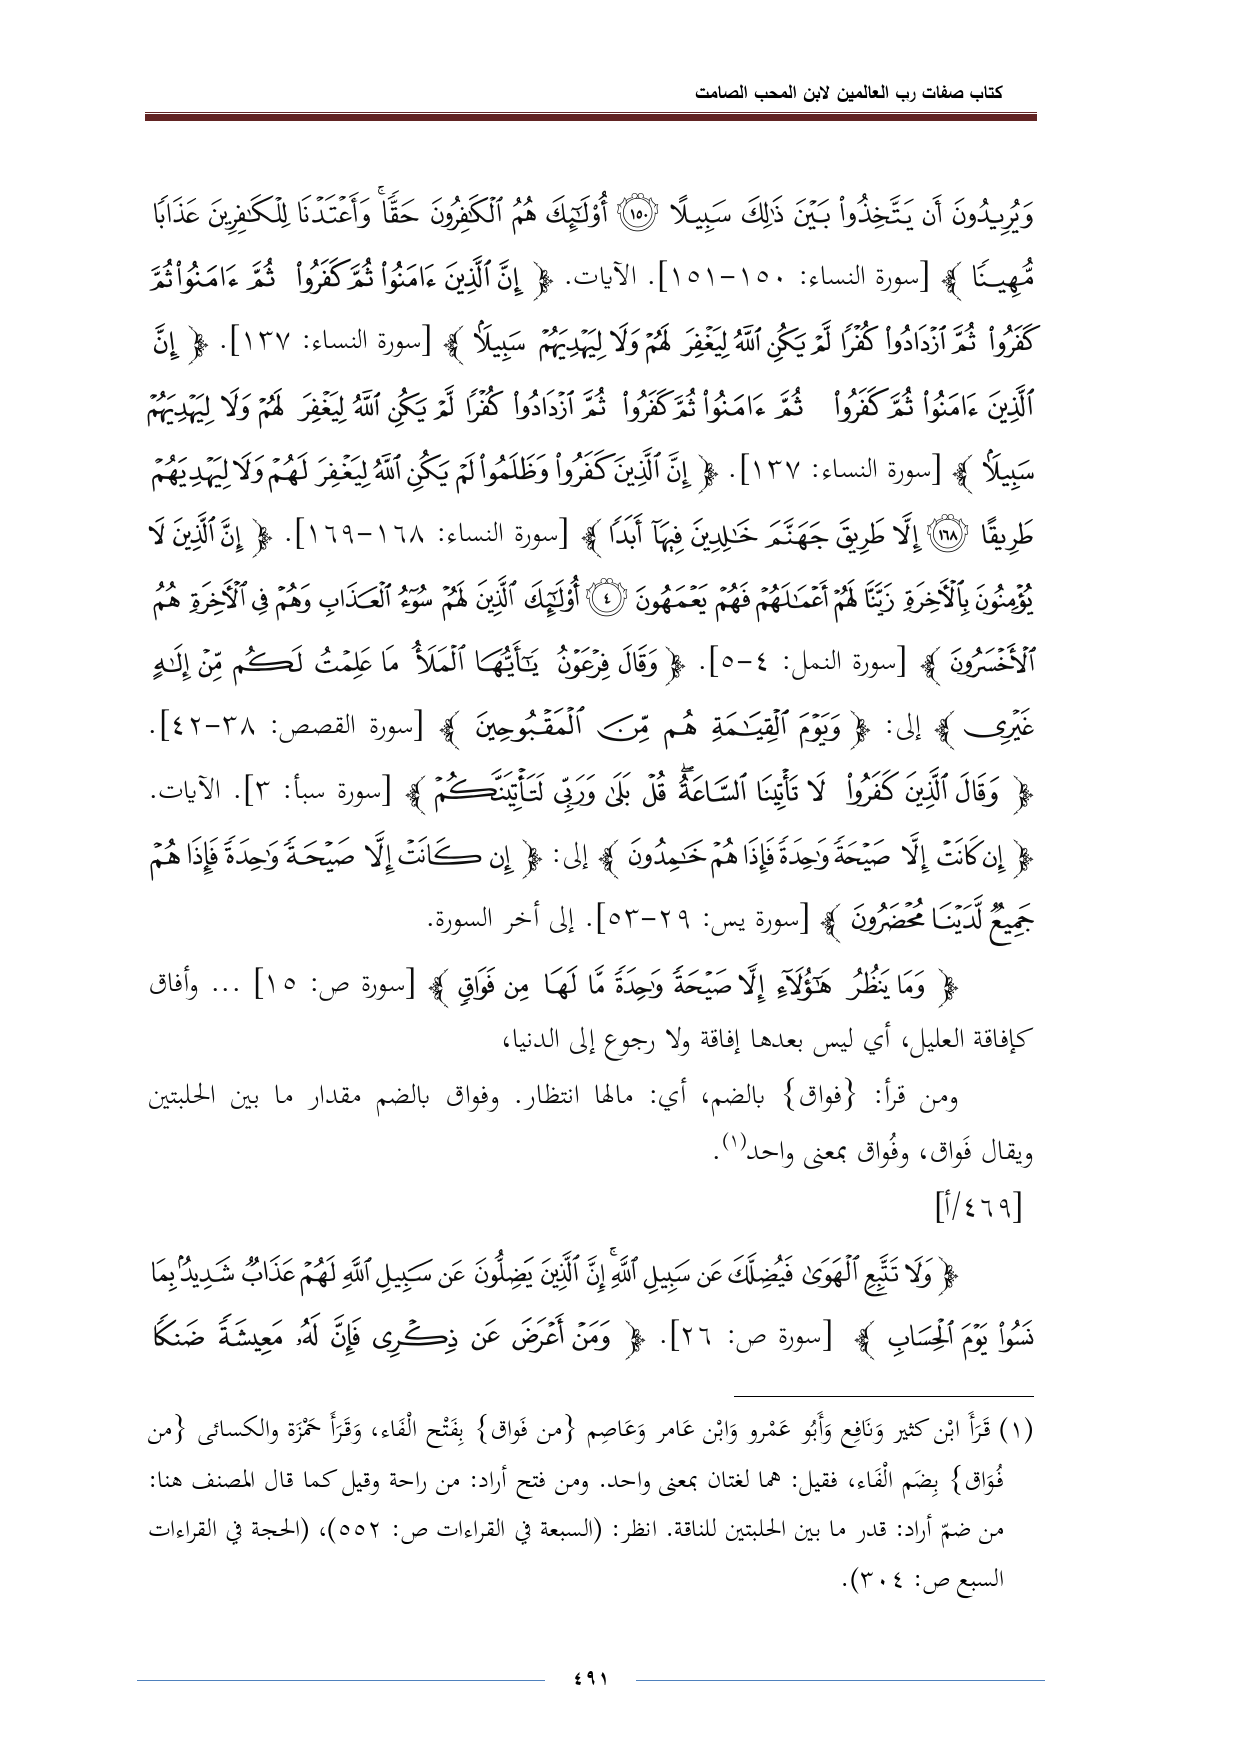 كتاب صفات رب العالمين لابن المحب الصامت
وَيُرِيدُونَ أَن يَتَّخِذُوا۟ بَيْنَ ذَٰلِكَ سَبِيلًا ١٥٠ أُو۟لَٰٓئِكَ هُمُ ٱلْكَٰفِرُونَ حَقًّا ۚ وَأَعْتَدْنَا لِلْكَٰفِرِينَ عَذَابًا
مُّهِينًا ﴾ [سورة النساء: ١٥٠-١٥١]. الآيات. ﴿ إِنَّ ٱلَّذِينَ ءَامَنُوا۟ ثُمَّ كَفَرُوا۟ ثُمَّ ءَامَنُوا۟ ثُمَّ
كَفَرُوا۟ ثُمَّ ٱزْدَادُوا۟ كُفْرًا لَّمْ يَكُنِ ٱللَّهُ لِيَغْفِرَ لَهُمْ وَلَا لِيَهْدِيَهُمْ سَبِيلًۢا ﴾ [سورة النساء: ١٣٧]. ﴿ إِنَّ
ٱلَّذِينَ ءَامَنُوا۟ ثُمَّ كَفَرُوا۟ ثُمَّ ءَامَنُوا۟ ثُمَّ كَفَرُوا۟ ثُمَّ ٱزْدَادُوا۟ كُفْرًا لَّمْ يَكُنِ ٱللَّهُ لِيَغْفِرَ لَهُمْ وَلَا لِيَهْدِيَهُمْ
سَبِيلًۢا ﴾ [سورة النساء: ١٣٧]. ﴿ إِنَّ ٱلَّذِينَ كَفَرُوا۟ وَظَلَمُوا۟ لَمْ يَكُنِ ٱللَّهُ لِيَغْفِرَ لَهُمْ وَلَا لِيَهْدِيَهُمْ
طَرِيقًا ١٦٨ إِلَّا طَرِيقَ جَهَنَّمَ خَٰلِدِينَ فِيهَآ أَبَدًا ﴾ [سورة النساء: ١٦٨-١٦٩]. ﴿ إِنَّ ٱلَّذِينَ لَا
يُؤْمِنُونَ بِٱلْأَخِرَةِ زَيَّنَّا لَهُمْ أَعْمَٰلَهُمْ فَهُمْ يَعْمَهُونَ ٤ أُو۟لَٰٓئِكَ ٱلَّذِينَ لَهُمْ سُوٓءُ ٱلْعَذَابِ وَهُمْ فِى ٱلْأَخِرَةِ هُمُ
ٱلْأَخْسَرُونَ ﴾ [سورة النمل: ٤-٥]. ﴿ وَقَالَ فِرْعَوْنُ يَٰٓأَيُّهَا ٱلْمَلَأُ مَا عَلِمْتُ لَكُم مِّنْ إِلَٰهٍ
غَيْرِى ﴾ إلى: ﴿ وَيَوْمَ ٱلْقِيَٰمَةِ هُم مِّنَ ٱلْمَقْبُوحِينَ ﴾ [سورة القصص: ٣٨-٤٢].
﴿ وَقَالَ ٱلَّذِينَ كَفَرُوا۟ لَا تَأْتِينَا ٱلسَّاعَةُ ۖ قُلْ بَلَىٰ وَرَبِّى لَتَأْتِيَنَّكُمْ ﴾ [سورة سبأ: ٣]. الآيات.
﴿ إِن كَانَتْ إِلَّا صَيْحَةً وَٰحِدَةً فَإِذَا هُمْ خَٰمِدُونَ ﴾ إلى: ﴿ إِن كَانَتْ إِلَّا صَيْحَةً وَٰحِدَةً فَإِذَا هُمْ
جَمِيعٌ لَّدَيْنَا مُحْضَرُونَ ﴾ [سورة يس: ٢٩-٥٣]. إلى أخر السورة.
﴿ وَمَا يَنظُرُ هَٰٓؤُلَآءِ إِلَّا صَيْحَةً وَٰحِدَةً مَّا لَهَا مِن فَوَاقٍ ﴾ [سورة ص: ١٥] ... وأفاق
كإفاقة العليل، أي ليس بعدها إفاقة ولا رجوع إلى الدنيا،
ومن قرأ: {فواق} بالضم، أي: مالها انتظار. وفواق بالضم مقدار ما بين الحلبتين
ويقال فَواق، وفُواق بمعنى واحد(١).
[٤٦٩/أ]
﴿ وَلَا تَتَّبِعِ ٱلْهَوَىٰ فَيُضِلَّكَ عَن سَبِيلِ ٱللَّهِ ۚ إِنَّ ٱلَّذِينَ يَضِلُّونَ عَن سَبِيلِ ٱللَّهِ لَهُمْ عَذَابٌ شَدِيدٌۢ بِمَا
نَسُوا۟ يَوْمَ ٱلْحِسَابِ ﴾ [سورة ص: ٢٦]. ﴿ وَمَنْ أَعْرَضَ عَن ذِكْرِى فَإِنَّ لَهُۥ مَعِيشَةً ضَنكًا
(١) قَرَأَ ابْن كثير وَنَافِع وَأَبُو عَمْرو وَابْن عَامر وَعَاصِم {من فَواق} بِفَتْح الْفَاء، وَقَرَأَ حَمْزَة والكسائى {من
فُوَاق} بِضَم الْفَاء، فقيل: هما لغتان بمعنى واحد. ومن فتح أراد: من راحة وقيل كما قال المصنف هنا:
من ضمّ أراد: قدر ما بين الحلبتين للناقة. انظر: (السبعة في القراءات ص: ٥٥٢)، (الحجة في القراءات
السبع ص: ٣٠٤).
٤٩١